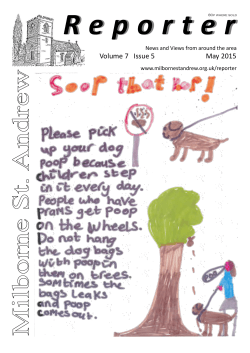 Reporter
News and Views from around the area
Volume 7 Issue 5 May 2015
www.milbornestandrew.org.uk/reporter
Milborne St. Andrew
Please pick
up your dog
poop because
children step
in it every day.
People who have
prams get poop
on the wheels.
Do not hang
the dog bags
with poop in
them on trees.
Sometimes the
bags leaks
and poop
comes out.